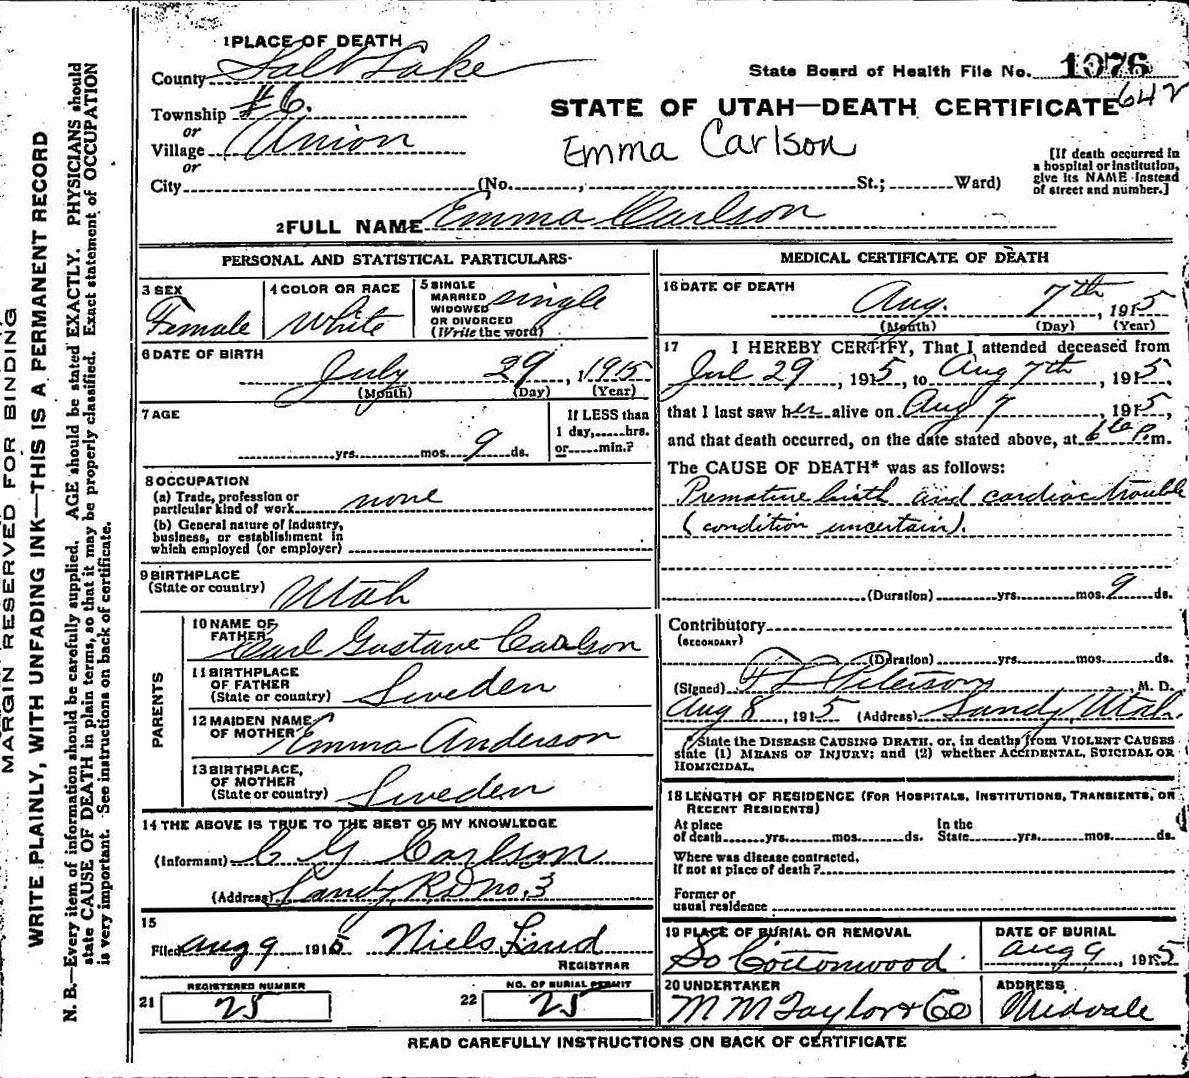 MARGIN RESERVED FOR BINDING
WRITE PLAINLY, WITH UNFADING INK—THIS IS A PERMANENT RECORD
N. B.—Every item of information should be carefully supplied. AGE should be stated EXACTLY. PHYSICIANS should
state CAUSE OF DEATH in plain terms, so that it may be properly classified. Exact statement of OCCUPATION
is very important. See instructions on back of certificate.
1 PLACE OF DEATH
County Salt Lake
Township #6.
or
Village Union
or
City (No. , St.; Ward)
State Board of Health File No. 1076
642
STATE OF UTAH—DEATH CERTIFICATE
Emma Carlson
[If death occurred in
a hospital or institution,
give its NAME instead
of street and number.]
2 FULL NAME Emma Carlson
PERSONAL AND STATISTICAL PARTICULARS
3 SEX
Female
4 COLOR OR RACE
White
5 SINGLE
MARRIED
WIDOWED
OR DIVORCED
(Write the word)
single
6 DATE OF BIRTH
July 29, 1915
(Month) (Day) (Year)
7 AGE
yrs. mos. 9 ds.
If LESS than
1 day, hrs.
or min.?
8 OCCUPATION
(a) Trade, profession or
particular kind of work none
(b) General nature of industry,
business, or establishment in
which employed (or employer)
9 BIRTHPLACE
(State or country) Utah
PARENTS
10 NAME OF
FATHER Carl Gustave Carlson
11 BIRTHPLACE
OF FATHER
(State or country) Sweden
12 MAIDEN NAME
OF MOTHER Emma Anderson
13 BIRTHPLACE,
OF MOTHER
(State or country) Sweden
14 THE ABOVE IS TRUE TO THE BEST OF MY KNOWLEDGE
(Informant) C G Carlson
(Address) Sandy, R.D no, 3
15
Filed Aug 9 1915 Niels Lind
REGISTRAR
21 REGISTERED NUMBER
25
22 NO. OF BURIAL PERMIT
25
MEDICAL CERTIFICATE OF DEATH
16 DATE OF DEATH
Aug. 7th, 1915
(Month) (Day) (Year)
17 I HEREBY CERTIFY, That I attended deceased from
Jul 29, 1915, to Aug 7th, 1915,
that I last saw her alive on Aug 7, 1915,
and that death occurred, on the date stated above, at 6 P.m.
The CAUSE OF DEATH* was as follows:
Premature birth and cardiac trouble
(condition uncertain).
(Duration) yrs. mos. 9 ds.
Contributory
(SECONDARY)
(Duration) yrs. mos. ds.
(Signed) Peterson M. D.
Aug 8, 1915 (Address) Sandy, Utah.
*State the DISEASE CAUSING DEATH, or, in deaths from VIOLENT CAUSES
state (1) MEANS OF INJURY; and (2) whether ACCIDENTAL, SUICIDAL OR
HOMICIDAL.
18 LENGTH OF RESIDENCE (FOR HOSPITALS, INSTITUTIONS, TRANSIENTS, OR
RECENT RESIDENTS)
At place In the
of death yrs. mos. ds. State yrs. mos. ds.
Where was disease contracted,
if not at place of death?
Former or
usual residence
19 PLACE OF BURIAL OR REMOVAL
So Cottonwood
DATE OF BURIAL
Aug 9, 1915
20 UNDERTAKER
M M Taylor & Co
ADDRESS
Midvale
READ CAREFULLY INSTRUCTIONS ON BACK OF CERTIFICATE